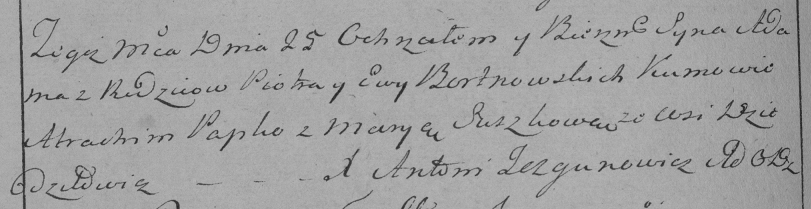 Tegoż Mca Dnia 25 Ochrzciłem y Bierzm Syna Ada
ma z Rodziców Piotra y Ewy Bortnowskich Kumowie
Atrachim Papko z Maryą Suszkowną ze wsi Dzie
Dziłowicz — — — X Antoni Jezgunowicz Ad